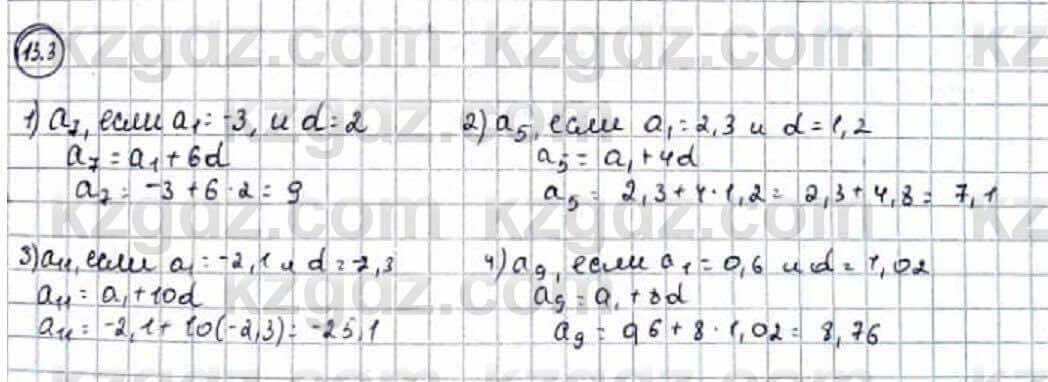 13.3
1) a7, если a1 = -3, и d = 2
a7 = a1 + 6d
a7 = -3 + 6 · 2 = 9
2) a5, если a1 = 2,3 и d = 1,2
a5 = a1 + 4d
a5 = 2,3 + 4 · 1,2 = 2,3 + 4,8 = 7,1
3) a11, если a1 = -2,1 и d = -2,3
a11 = a1 + 10d
a11 = -2,1 + 10(-2,3) = -25,1
4) a9, если a1 = 0,6 и d = 1,02
a9 = a1 + 8d
a9 = 0,6 + 8 · 1,02 = 8,76
kzgdz.com